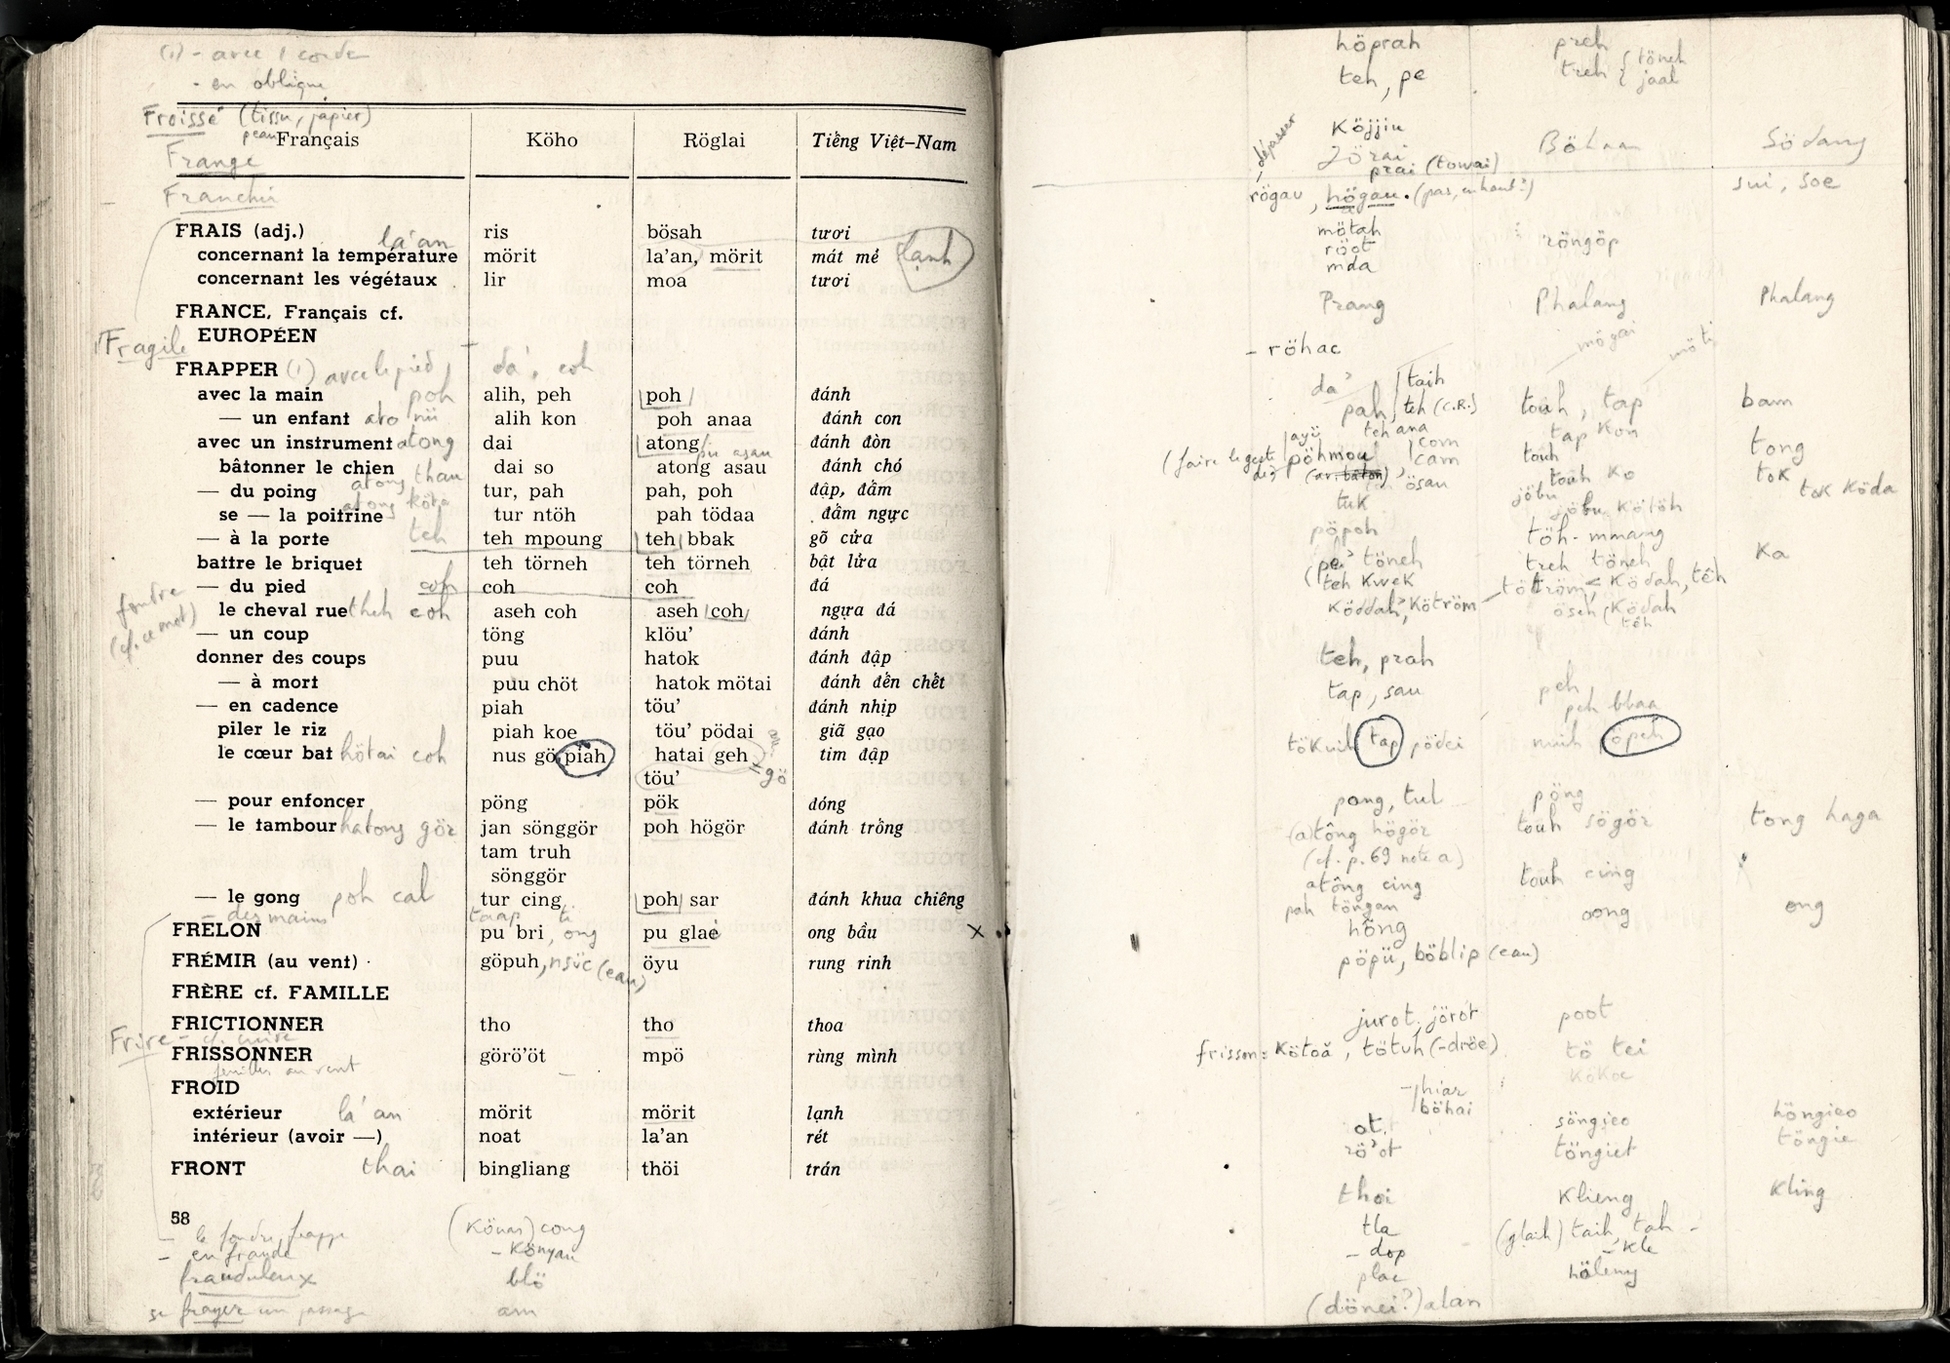 (1) - avec 1 corde
- en oblique
Froissé (tissu, papier)
peau
Français Köho Röglai Tiếng Việt-Nam
Frange
Franchir
FRAIS (adj.) ris bösah tươi
la'an
concernant la température mörit la'an, mörit mát mẻ lạnh
concernant les végétaux lir moa tươi
FRANCE, Français cf.
EUROPÉEN
Fragile
FRAPPER (1) avec le pied da', coh
avec la main poh alih, peh poh đánh
— un enfant alih kon poh anaa đánh con
avec un instrument atong dai atong đánh đòn
bâtonner le chien dai so atong asau đánh chó
— du poing tur, pah pah, poh đập, đấm
se — la poitrine tur ntöh pah tödaa đấm ngực
— à la porte teh teh mpoung teh bbak gõ cửa
battre le briquet teh törneh teh törneh bật lửa
— du pied coh coh coh đá
le cheval rue coh aseh coh aseh coh ngựa đá
foudre
(cf. ce mot)
— un coup töng klöu' đánh
donner des coups puu hatok đánh đập
— à mort puu chöt hatok mötai đánh đến chết
— en cadence piah töu' đánh nhịp
piler le riz piah koe töu' pödai giã gạo
le cœur bat hötai coh nus gö piah hatai geh tim đập
töu' gö
— pour enfoncer pöng pök đóng
— le tambour hatong gör jan sönggör poh högör đánh trống
tam truh
sönggör
— le gong poh cal tur cing poh sar đánh khua chiêng
— des mains taap ti
FRELON pu bri, ong pu glaé ong bầu x
FRÉMIR (au vent) göpuh, nsüc (eau) öyu rung rinh
FRÈRE cf. FAMILLE
FRICTIONNER tho tho thoa
Frire - cf. cuire
FRISSONNER görö'öt mpö rùng mình
feuilles au vent
FROID
extérieur la'an mörit mörit lạnh
intérieur (avoir —) noat la'an rét
FRONT thai bingliang thöi trán
58
- la foudre frappe (Könas) cong
- en fraude - Könyau
frauduleux blö
se frayer un passage am
höprah preh
teh, pe treh { töneh
jaal
dépasser
Köjjiu
Jörai Böhnan Södang
prai (towai)
rögau, högau. (pas, en haut?) sui, soe
mötah
röot röngöp
mda
Prang Phalang Phalang
- röhac mögai möti
da' taih
pah teh (C.R.) touh, tap bam
teh ana tap Kon
(faire le geste de) pöhmou com cam touh tong
(av. bâton) ösau touh Ko toK
tuk jöbu jöbu Kötöh toK Köda
pöpoh töh-mmang
pe' töneh treh töneh Ka
teh KweK tötröm, Ködah, têh
Köddah, Kötröm öseh (Ködah
têh
teh, prah
tap, sau peh
peh bbaa
töKuih tap pödei nuih öpeh
pong, tul pöng
(a)tông högör touh sögör tong haga
(cf. p. 69 note a)
atông cing touh cing
pah töngan
hông oong ong
pöpü, böblip (eau)
jurot, jöröt poot
frisson = Kötoă, tötuh (-dröe) tö tei
KöKoe
- hiar
böhai
ot söngieo höngieo
rö'ot töngiet töngie
thoi Klieng Kling
tla (glaih) taih, tah -
- dop - Kle
plac höleny
(dönei?) alan